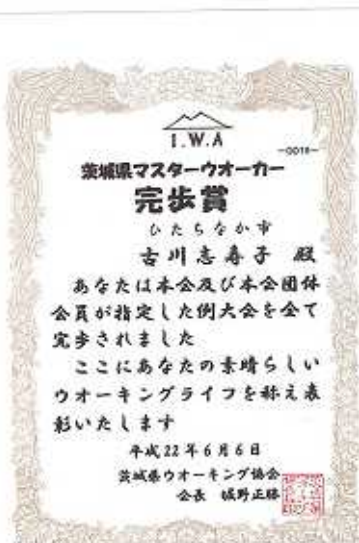 I.W.A
-0018-
茨城県マスターウオーカー
完歩賞
ひたちなか市
古川志寿子 殿
あなたは本会及び本会団体
会員が指定した例大会を全て
完歩されました
ここにあなたの素晴らしい
ウオーキングライフを称え表
彰いたします
平成22年6月6日
茨城県ウオーキング協会
会長 堀野正勝